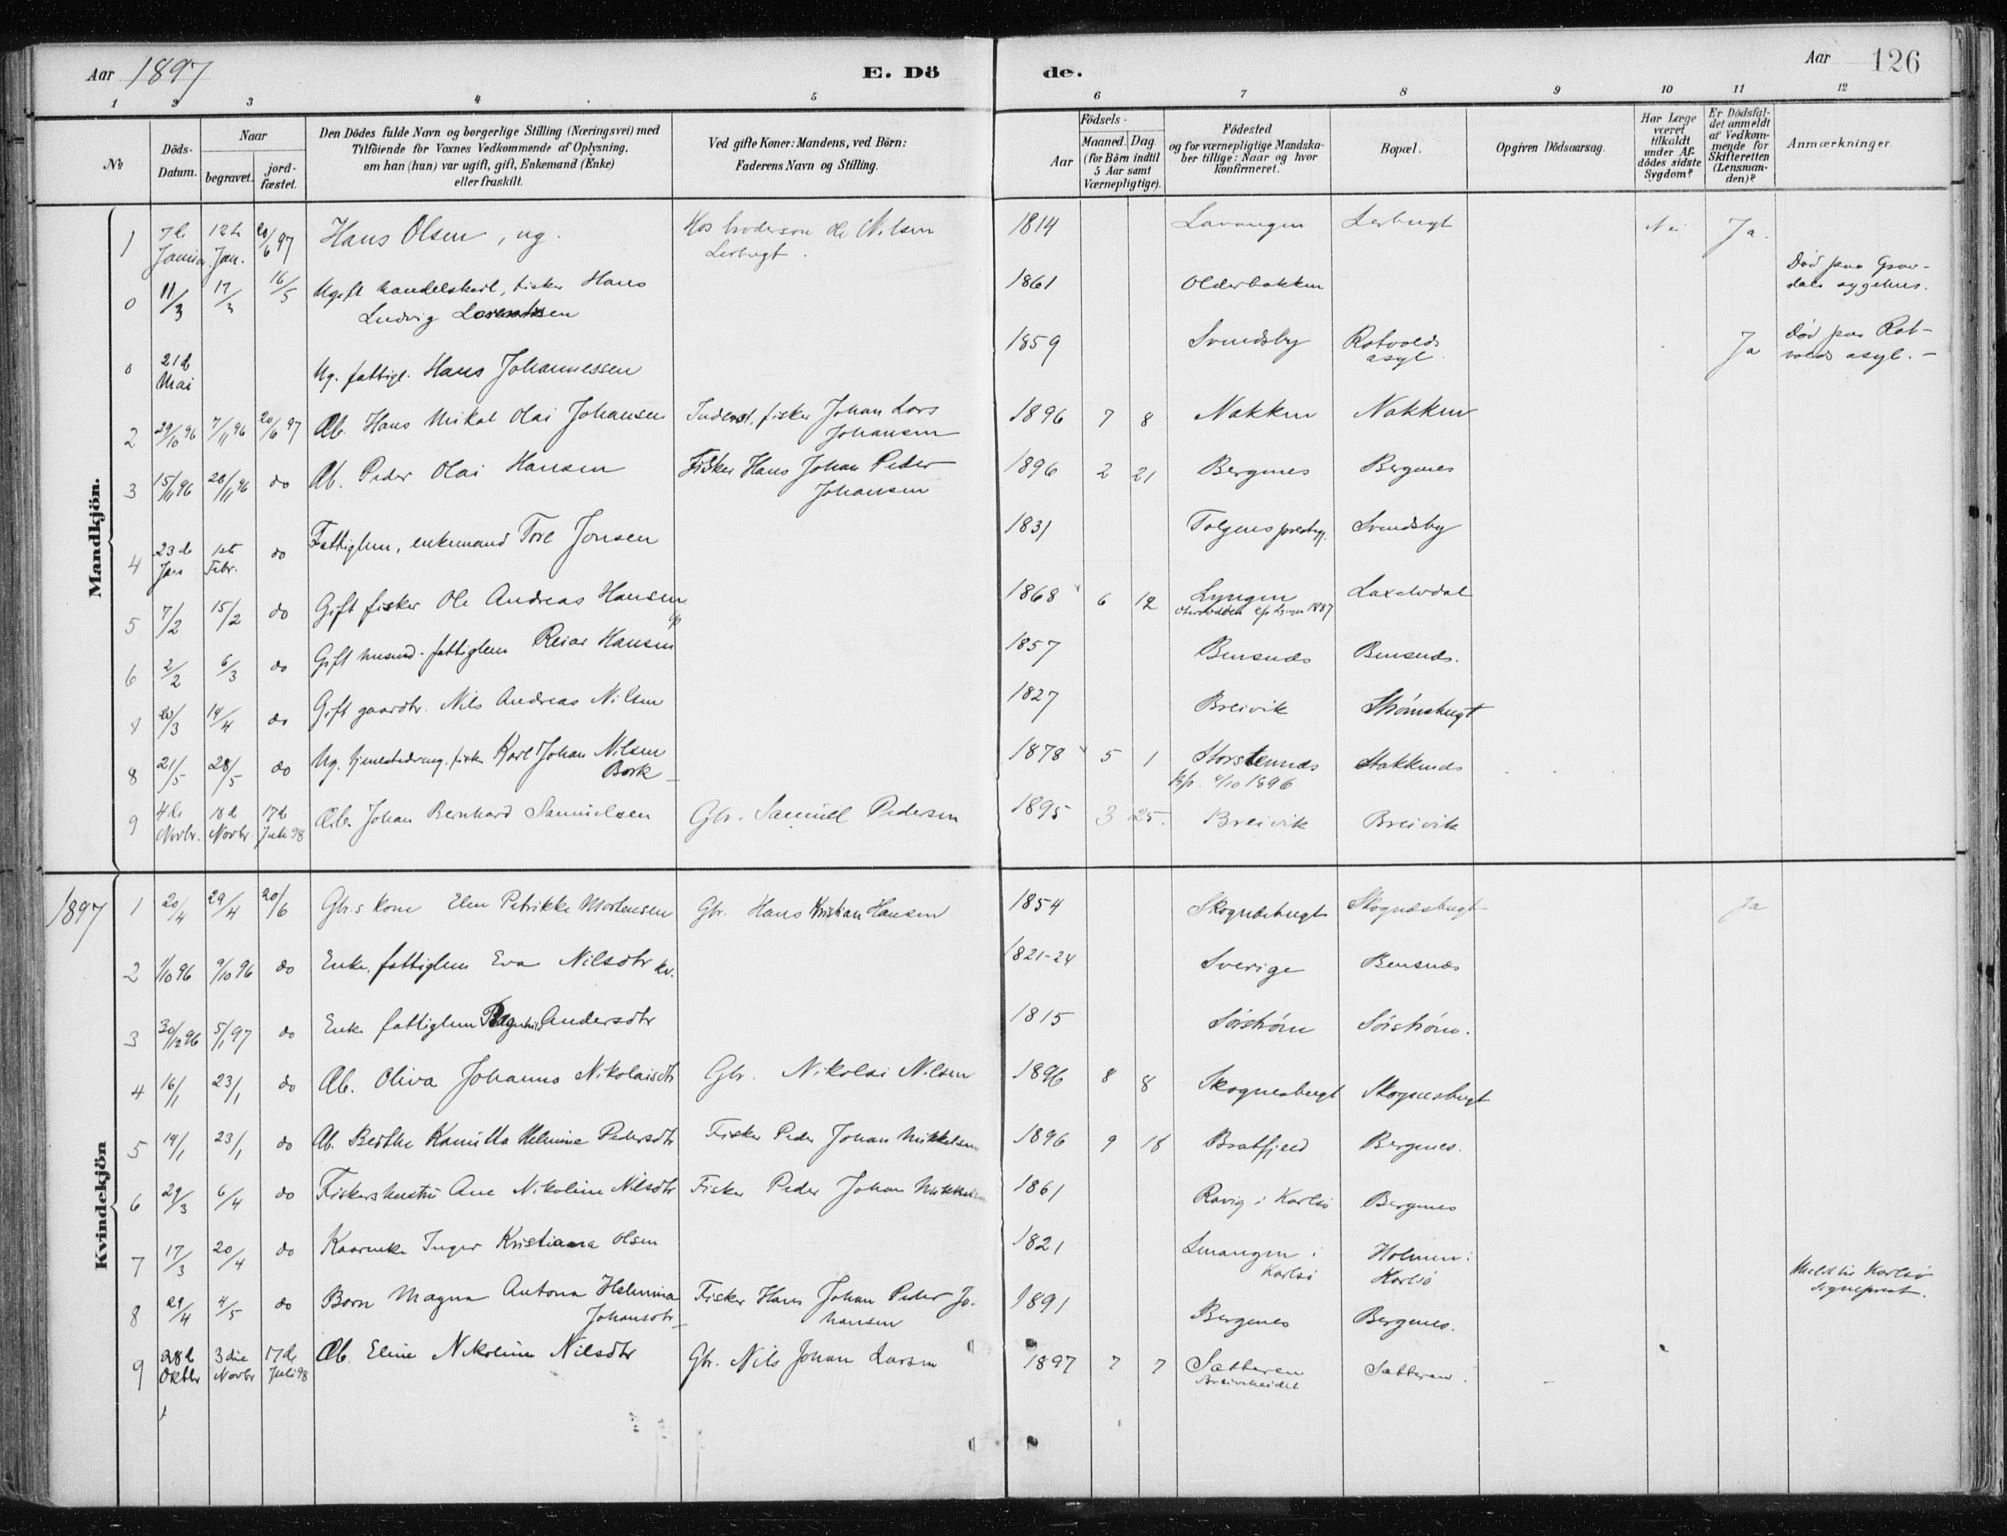 Aar 1897 E. Dö de. Aar 126
1 2 3 4 5 6 7 8 9 10 11 12
No
Döds-Datum.
Naar
begravet.
jord-fæstet.
Den Dödes fulde Navn og borgerlige Stilling (Næringsvei) med
Tilföiende for Voxnes Vedkommende af Oplysning,
om han (hun) var ugift, gift, Enkemand (Enke)
eller fraskilt.
Ved gifte Koner: Mandens, ved Börn:
Faderens Navn og Stilling.
Födsels-
Aar
Maaned.
Dag
(for Börn indtil
5 Aar samt
Værnepligtige).
Födested
og for værnepligtige Mandska-
ber tillige: Naar og hvor
konfirmeret.
Bopæl.
Opgiven Dödsaarsag.
Har Læge
været
tilkaldt
under Af-
dödes sidste
Sygdom?
Er Dödsfal-
det anmeldt
af Vedkom-
mende for
Skifteretten
(Lensman-
den)?
Anmærkninger.
Mandkjön.
1 7de Januar 12te Jan. 20/6 97 Hans Olsen, ug. Hos broderson Ole Nilsen Lerbugt. 1814 Lavangen Lerbugt Nei Ja.
0 11/3 17/3 16/5 Ugift handelskarl, fisker Hans Ludvig Lorentsen 1861 Olderbakken Död paa Grav-dals sygehus.
0 21de Mai Ug. fattigl. Hans Johannessen 1859 Svendsby Rotvolds asyl. Ja Död paa Rot-volds asyl. -
2 29/10 96 7/11 96 20/6 97 Æb. Hans Mikal Olai Johansen Inderst, fisker Johan Lars Johansen 1896 7 8 Nakken Nakken
3 15/11 96 28/11 96 do Æb. Peder Olai Hansen Fisker Hans Johan Peder Johansen 1896 2 21 Bergnes Bergnes
4 23de Jan 1ste Febr. do Fattiglem, enkemand Tore Jonsen 1831 Tolgens prestgj. Svendsby
5 7/2 15/2 do Gift fisker Ole Andreas Hansen 1868 6 12 Lyngen 1887 Laxelvdal
6 2/2 6/3 do Gift husmd. fattiglem Reiar Hansen 1857 Bensnes Bensnes.
20/3 14/4 do Gift gaardbr. Nils Andreas Nilsen 1827 Breivik Strömsbugt
8 21/5 28/5 do Ug. fisker Karl Johan Nilsen Bork 1878 5 1 Storstennes kfr. 4/10 1896 Stakkenes
9 4de Novbr. 18de Novbr. 17de Juli 98 Æb. Johan Bernhard Samuelsen Gbr. Samuel Pedersen 1895 3 25. Breivik Breivik
1897
Kvindekjön
1 20/4 29/4 20/6 Gbr.s kone Elen Petrikke Mortensen Gbr. Hans Kristian Hansen 1854 Skognæsbugt Skognæsbugt Ja
2 1/10 96 9/10 96 do Enke, fattiglem Eva Nilsdtr kv. 1821-24 Sverige Bensnæs
3 30/12 96 5/1 97 do Enke fattiglem Ragnhild Andersdtr 1815 Sörström Sörström.
4 16/1 23/1 do Æb. Oliva Johanna Nikolaisdtr Gbr. Nikolai Nilsen 1896 8 8 Skognesbugt Skognesbugt
5 14/1 23/1 do Æb. Berthe Kamilla Helmine Pedersdtr Fisker Peder Johan Mikkelsen 1896 9 18 Bratfjeld Bergnes.
6 29/3 6/4 do Fiskershustru Ane Nikoline Nilsdtr Fisker Peder Johan Mikkelsen 1861 Ravig i Karlsö Bergnes
7 17/3 20/4 do Kaarenke Inger Kristiana Olsen 1821 i Karlsö Holmen i Karlsö Meldt til Karlsö Sogneprest.
8 29/4 4/5 do Barn Magna Antona Helmina Johansdtr Fisker Hans Johan Peder Johansen 1891 Bergnes Bergnes.
9 28de Oktbr 3die Novbr 17de Juli 98 Æb. Eline Nikoline Nilsdtr Gbr. Nils Johan Larsen 1897 7 7 Sætteren Breivikeidet Sætteren.